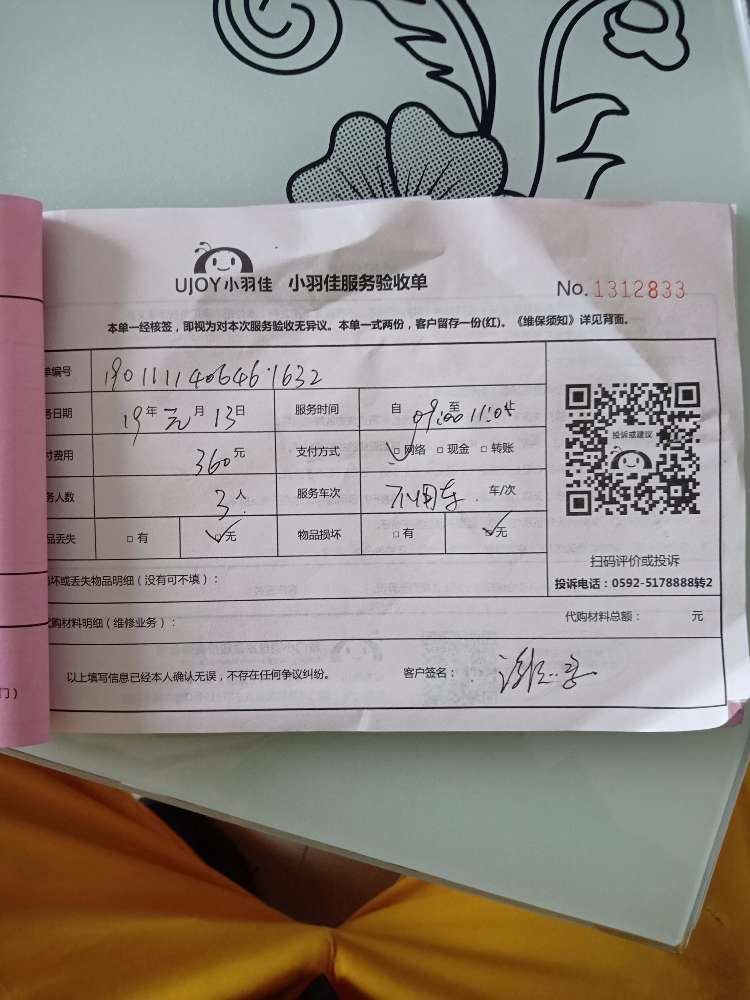 UJOY小羽佳 小羽佳服务验收单 No.1312833
本单一经核签，即视为对本次服务验收无异议。本单一式两份，客户留存一份(红)。《维保须知》详见背面。
单编号 1901111406461632
务日期 19年元月13日 服务时间 自09:00至11:04
付费用 360元 支付方式 □网络 □现金 □转账
务人数 3人 服务车次 不用车 车/次
品丢失 □有 □无 物品损坏 □有 □无
投诉或建议
扫码评价或投诉
投诉电话：0592-5178888转2
坏或丢失物品明细（没有可不填）：
购材料明细（维修业务）： 代购材料总额： 元
以上填写信息已经本人确认无误，不存在任何争议纠纷。 客户签名：
门）